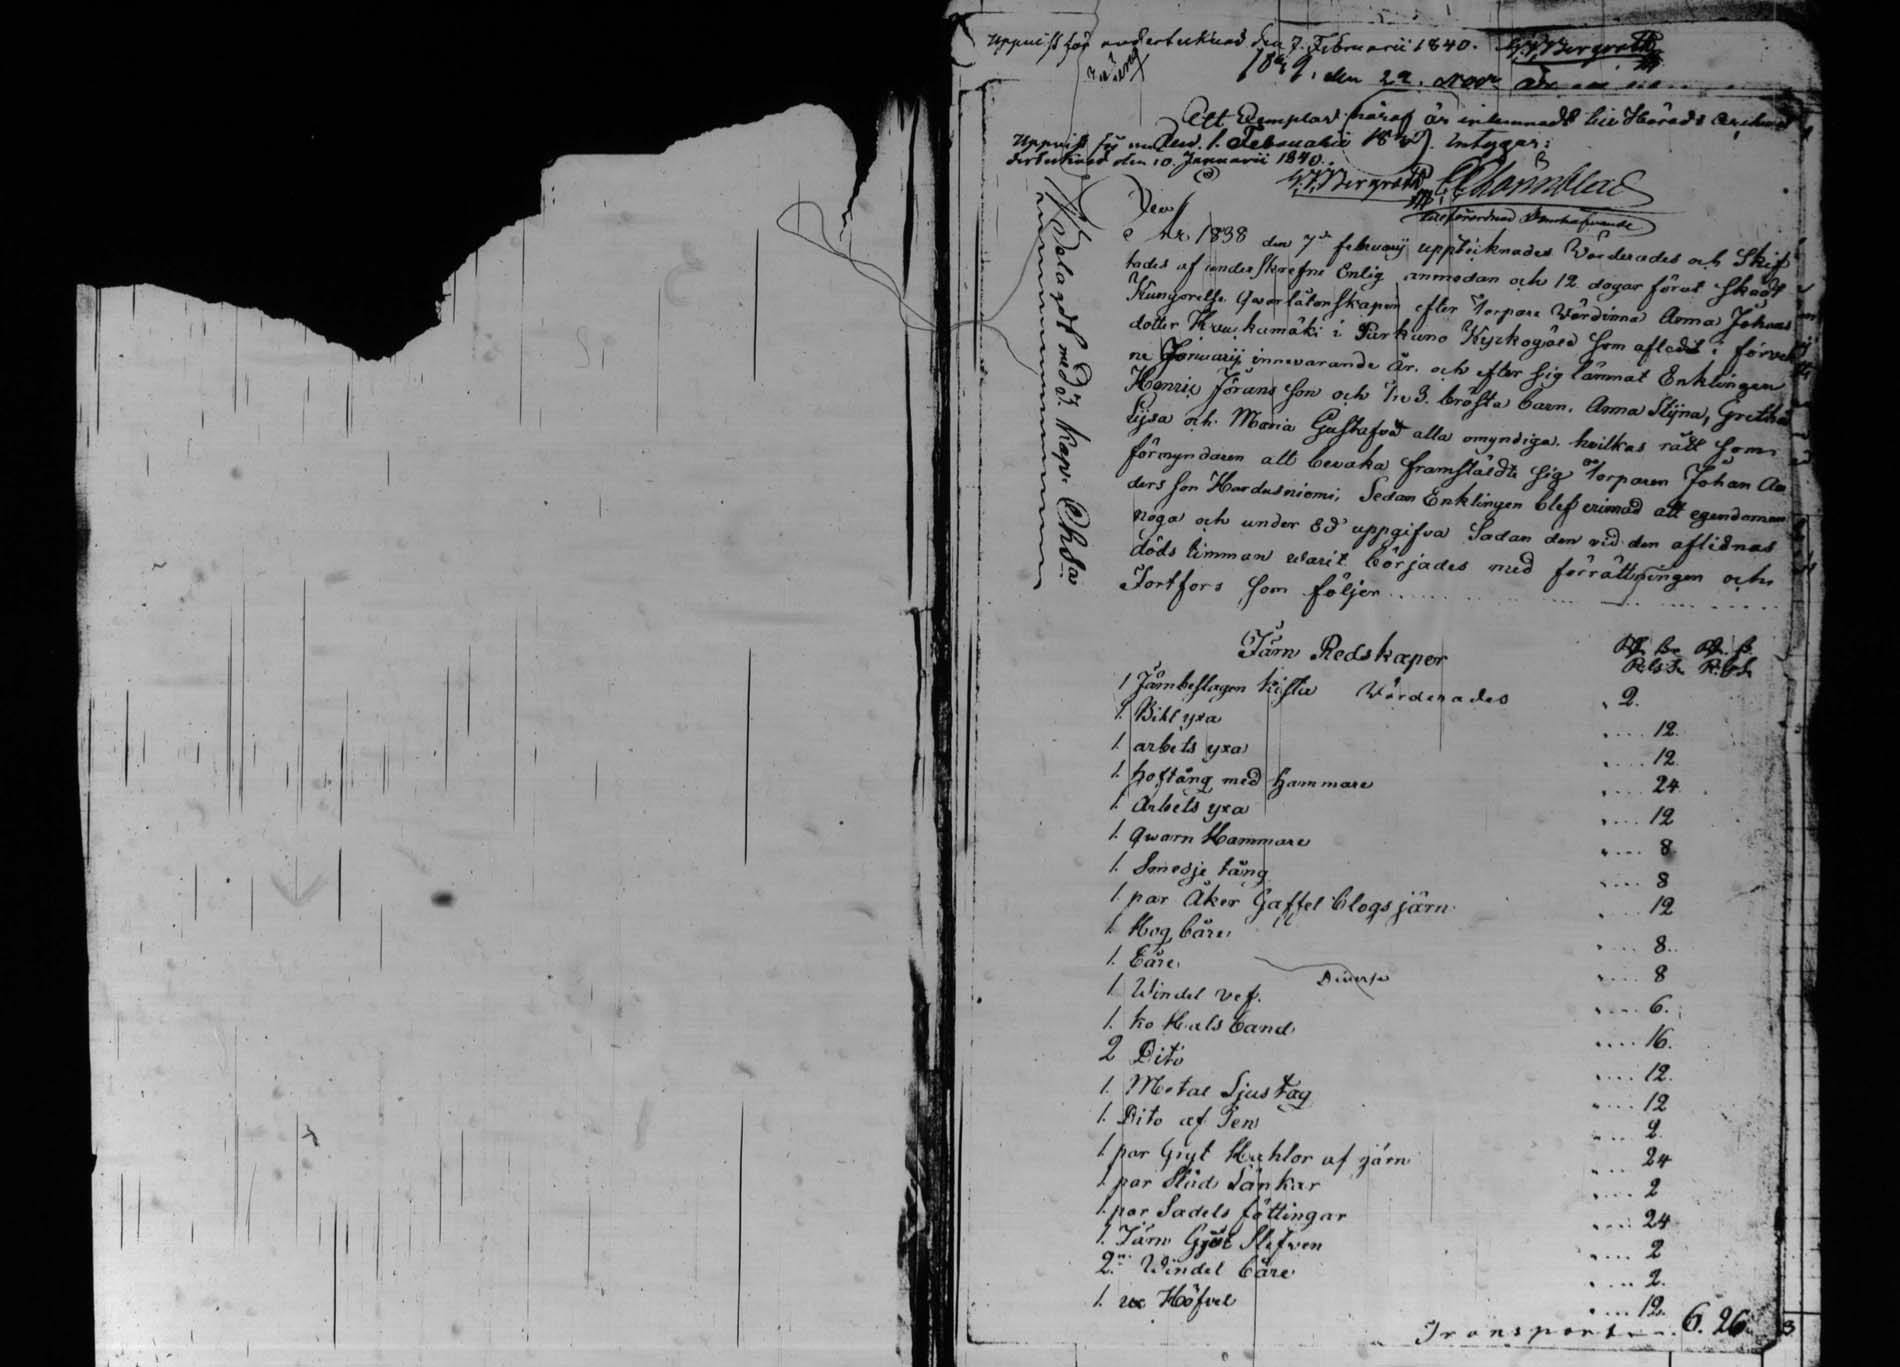 Uppvist för undertecknad den 7. Februarii 1840. G. W. Bergroth
den 22. Novr
Ett Exemplar häraf är inlemnadt till Härads Archivet
den 1. Februarii 1840. Intygar:
Uppvist för un
dertecknad den 10. Januarii 1840.
G. W. Bergroth
Tillförordnad Domhafvande
År 1838 den 7de februarij uppteiknades Värderades och Skif
tades af underskrefne Enlig anmodan och 12 dagar förut skedt
Kungörelse Qwarlåtenskapen efter Torpare Wärdinna Anna Johans
dotter Kruuhamäki i Parkano Kyrkogäld Som afledit i förvek
ne Januarij innevarande år. och efter sig lämnat Enklingen
Henric Jörans son och Tre 3. brösta barn. Anna Stijna, Gretha
Lijsa och Maria Gustafva alla omyndiga. hvilkas rätt som
förmyndaren att bevaka framstäldte sig Torparen Johan An
ders son Hardusniemi, Sedan Enklingen blef erinrad att egendomen
noga och under Ed uppgifva Sadan den vid den aflidnas
döds timman warit börjades med förrättningen och
Fortfors som följer
Videlagdt med 3. kop. Chta
Järn Redskaper
1 Järnbeslagen kista Värderades 2.
1. Bihl yxa 12.
1. arbets yxa 12.
1. hoftång med hammare 24
1. Arbets yxa 12
1. qwarn Hammare 8
1. Smedje tång 8
1. par Åker Gaffel blogs järn 12
1. Hog bäre 8.
1. bäre 8
Diverse
1. Windel vef. 6.
1. ko Hals band 16.
2 Dito 12.
1. Metal Ljus tag 12
1. Dito af Ten 2.
1. par Gryt Hahlor af järn 24
1. par Släd Länkar 2
1. par Sadels fättingar 24
1. Järn Gryt Slefven 2
2. Windel bäre 2.
1. Höfvel 12.
Transport 6. 26